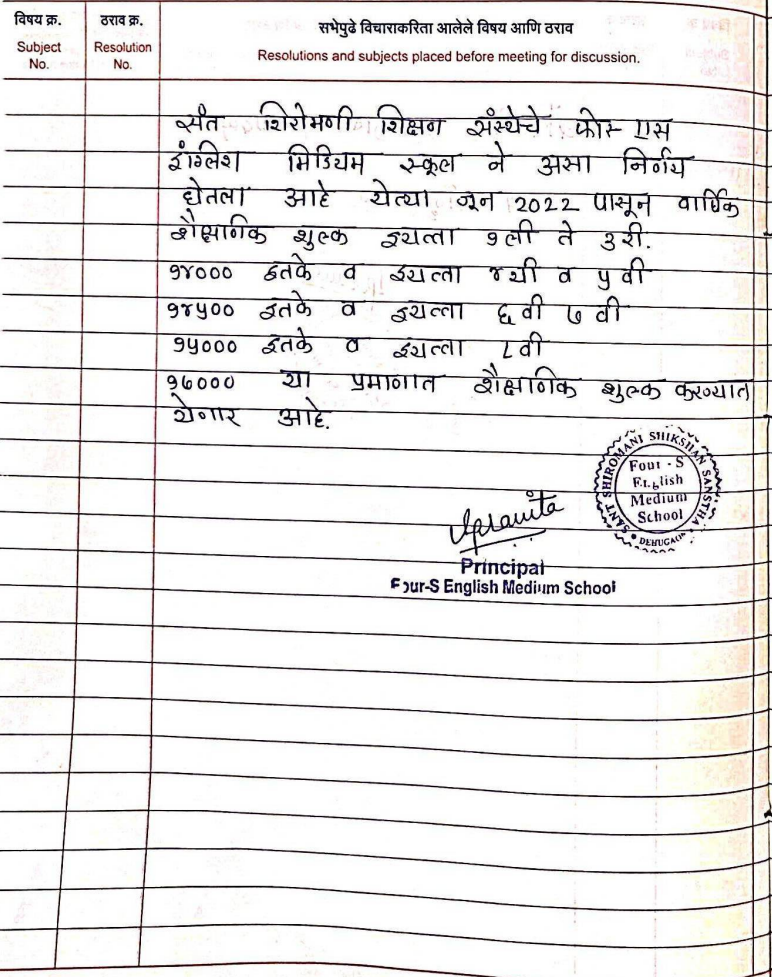 विषय क्र. ठराव क्र. सभेपुढे विचाराकरिता आलेले विषय आणि ठराव
Subject No. Resolution No. Resolutions and subjects placed before meeting for discussion.
संत शिरोमणी शिक्षण संस्थेचे फोर एस
इंग्लिश मिडियम स्कूल ने असा निर्णय
घेतला आहे येत्या जून 2022 पासून वार्षिक
शैक्षणिक शुल्क इयत्ता १ली ते ३री.
१४००० इतके व इयत्ता ४थी व ५वी
१४५०० इतके व इयत्ता ६वी ७वी
१५००० इतके व इयत्ता ८वी
१६००० या प्रमाणात शैक्षणिक शुल्क करण्यात
येणार आहे.
SANT SHIROMANI SHIKSHAN SANSTHA
Four - S
English
Medium
School
DEHUGAON
Principal
Four-S English Medium School